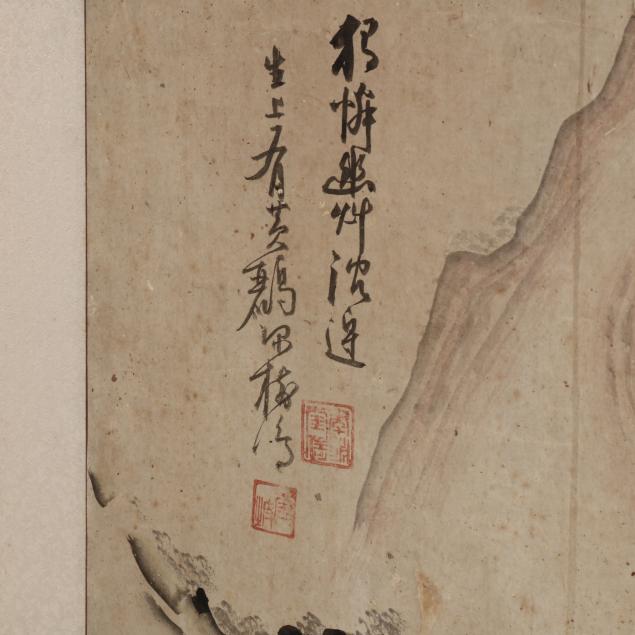 獨憐幽艸澗邊
生上有黃鸝深樹鳴